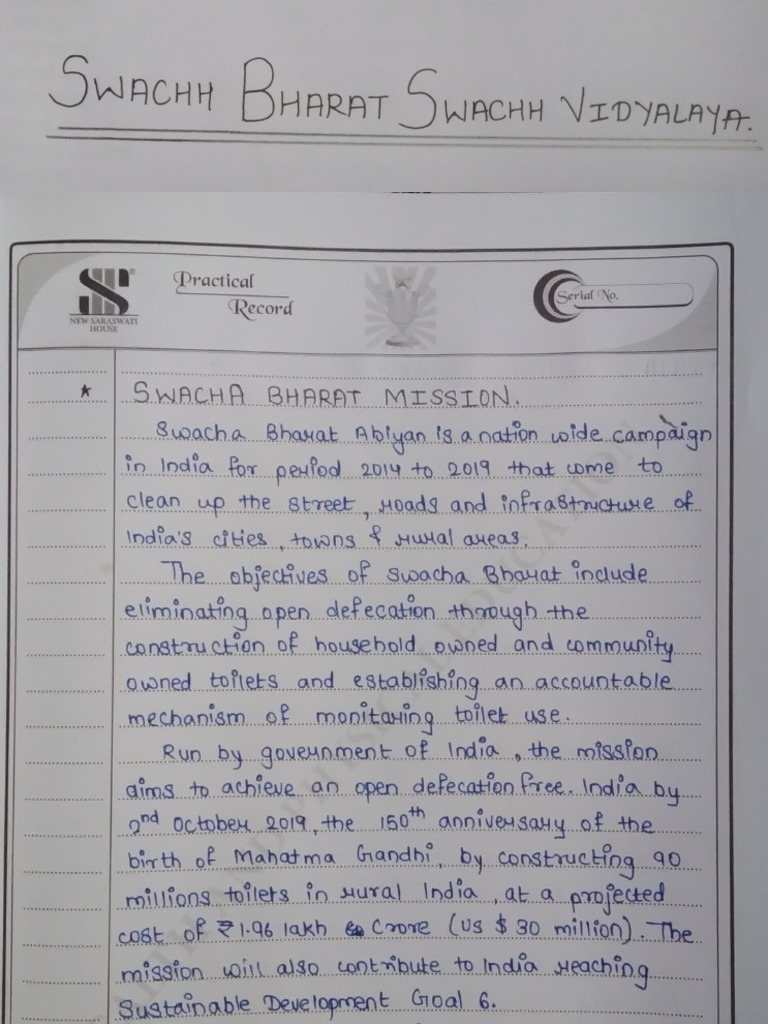 SWACHH BHARAT SWACHH VIDYALAYA.
NEW SARASWATI
HOUSE
Practical
Record
Serial No.
* SWACHA BHARAT MISSION.
Swacha Bharat Abiyan is a nation wide campaign
in India for period 2014 to 2019 that come to
clean up the street, roads and infrastructure of
India's cities, towns & rural areas.
The objectives of Swacha Bharat include
eliminating open defecation through the
construction of household owned and community
owned toilets and establishing an accountable
mechanism of monitoring toilet use.
Run by government of India, the mission
aims to achieve an open defecation free. India by
2nd October 2019, the 150th anniversary of the
birth of Mahatma Gandhi, by constructing 90
millions toilets in rural India, at a projected
cost of ₹1.96 lakh Crore (US $ 30 million). The
mission will also contribute to India reaching
Sustainable Development Goal 6.